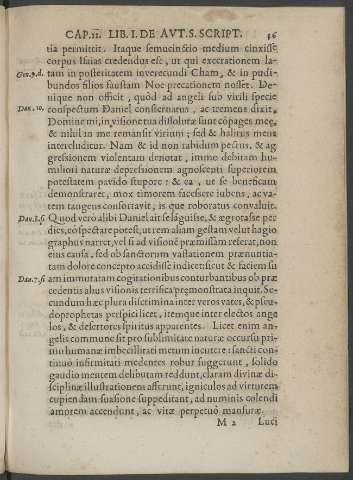 CAP.II. LIB. I. DE AVT. S. SCRIPT. 46
tiâ permittit. Itaque semucinctio medium cinxisse
corpus Isaias credendus est, ut qui execrationem la-
Gen.9.d. tam in posteritatem inverecundi Cham, & in pudi-
bundos filios faustam Noe precationem nosset. De-
nique non officit, quod ad angeli sub virili specie
Dan.10. conspectum Daniel consternatus, ac tremens dixit,
Domine mi, in visione tua dissolutæ sunt côpages meę,
& nihil in me remansit virium; sed & halitus meus
intercluditur. Nam & id non rabidum pectus, & ag
gressionem violentam denotat, immo debitam hu-
miliori naturæ depressionem agnoscenti superiorem
potestatem pavido stupore: & ea, ut se beneficam
demonstraret, mox timorem facessere iubens, ac va-
tem tangens confortavit, is que roboratus convaluit.
Dan.8.fi Quod verò alibi Daniel ait se lâguisse, & ægrotasse per
dies, eò spectare potest, ut rem aliam gestam velut hagio
graphus narret, vel si ad visionē præmissam referat, non
eius causa, sed ob sanctorum vastationem prænuntia-
tam dolore concepto accidisse indicet: sicut & faciem su
Dan.7.fi am immutatam cogitationibus conturbantibus ob præ
cedentis ahus visionis terrifica præmonstrata inquit. Se-
cundum hæc plura discrimina inter veros vates, & pseu-
doprophetas perspici licet, itemque inter electos ange
los, & desertores spiritus apparentes. Licet enim an-
gelis commune sit pro sublimitate naturæ occursu pri-
mo humanæ imbecillitati metum incutere: sancti con-
tinuò infirmitati medentes robur suggerunt, solido
gaudio mentem delibutam reddunt, claram divinæ di-
sciplinæ illustrationem afferunt, igniculos ad virtutem
cupiendam suasione suppeditant, ad numinis colendi
amorem accendunt, ac vitæ perpetuò mansuræ
M 2 Luci